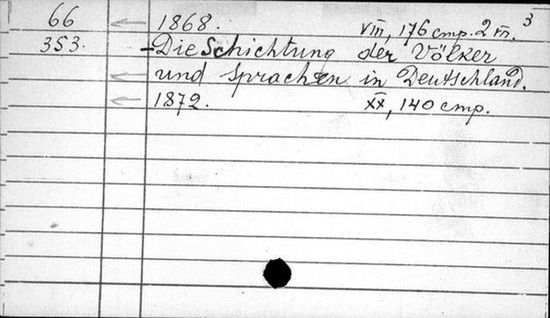 66 ← 1868. VIII, 176 стр. 2 т. 3
353. – Die Schichtung der Völker
← und Sprachen in Deutschland.
← 1872. XX, 140 стр.